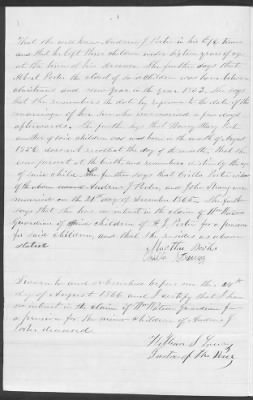 That she well knew Andrew J. Porter in his life time
and that he left three children under sixteen years of age
at the time of his decease. She further says that
Albert Porter the oldest of said children was born between
christmas and new year in the year 1853. She says
that she remembers the date by reference to the date of the
marriage of her son who was married a few days
afterwards. She further says that Mary Porter
another of said children was born in the month of August
1856 does not recollect the day of the month that she
was present at the birth and remembers distinctly the age
of said child. She further says that Orilla Porter widow
of the above named Andrew J. Porter, and John were
married on the 21st day of December 1865. She further
says that she has no interest in the claim of Wm
Guardian of children of A J Porter for a pension
for said children, and that she resides as above
stated
Martha

Sworn to and subscribed before me this
day of August 1866 and I certify that I have
no interest in the claim of Wm Guardian for
a pension for the minor children of Andrew J
Porter deceased
William S
Justice of the Peace